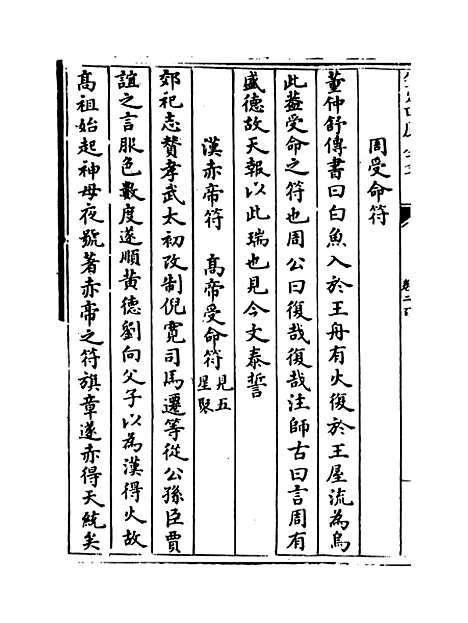 周受命符
董仲舒傳書曰白魚入於王舟有火復於王屋流為烏
此葢受命之符也周公曰復哉復哉注師古曰言周有
盛德故天報以此瑞也見今文泰誓
漢赤帝符　高帝受命符見五星聚
郊祀志贊孝武太初改制倪寛司馬遷等從公孫臣賈
誼之言服色數度遂順黄德劉向父子以為漢得火故
髙祖始起神母夜號著赤帝之符旗章遂赤得天統矣